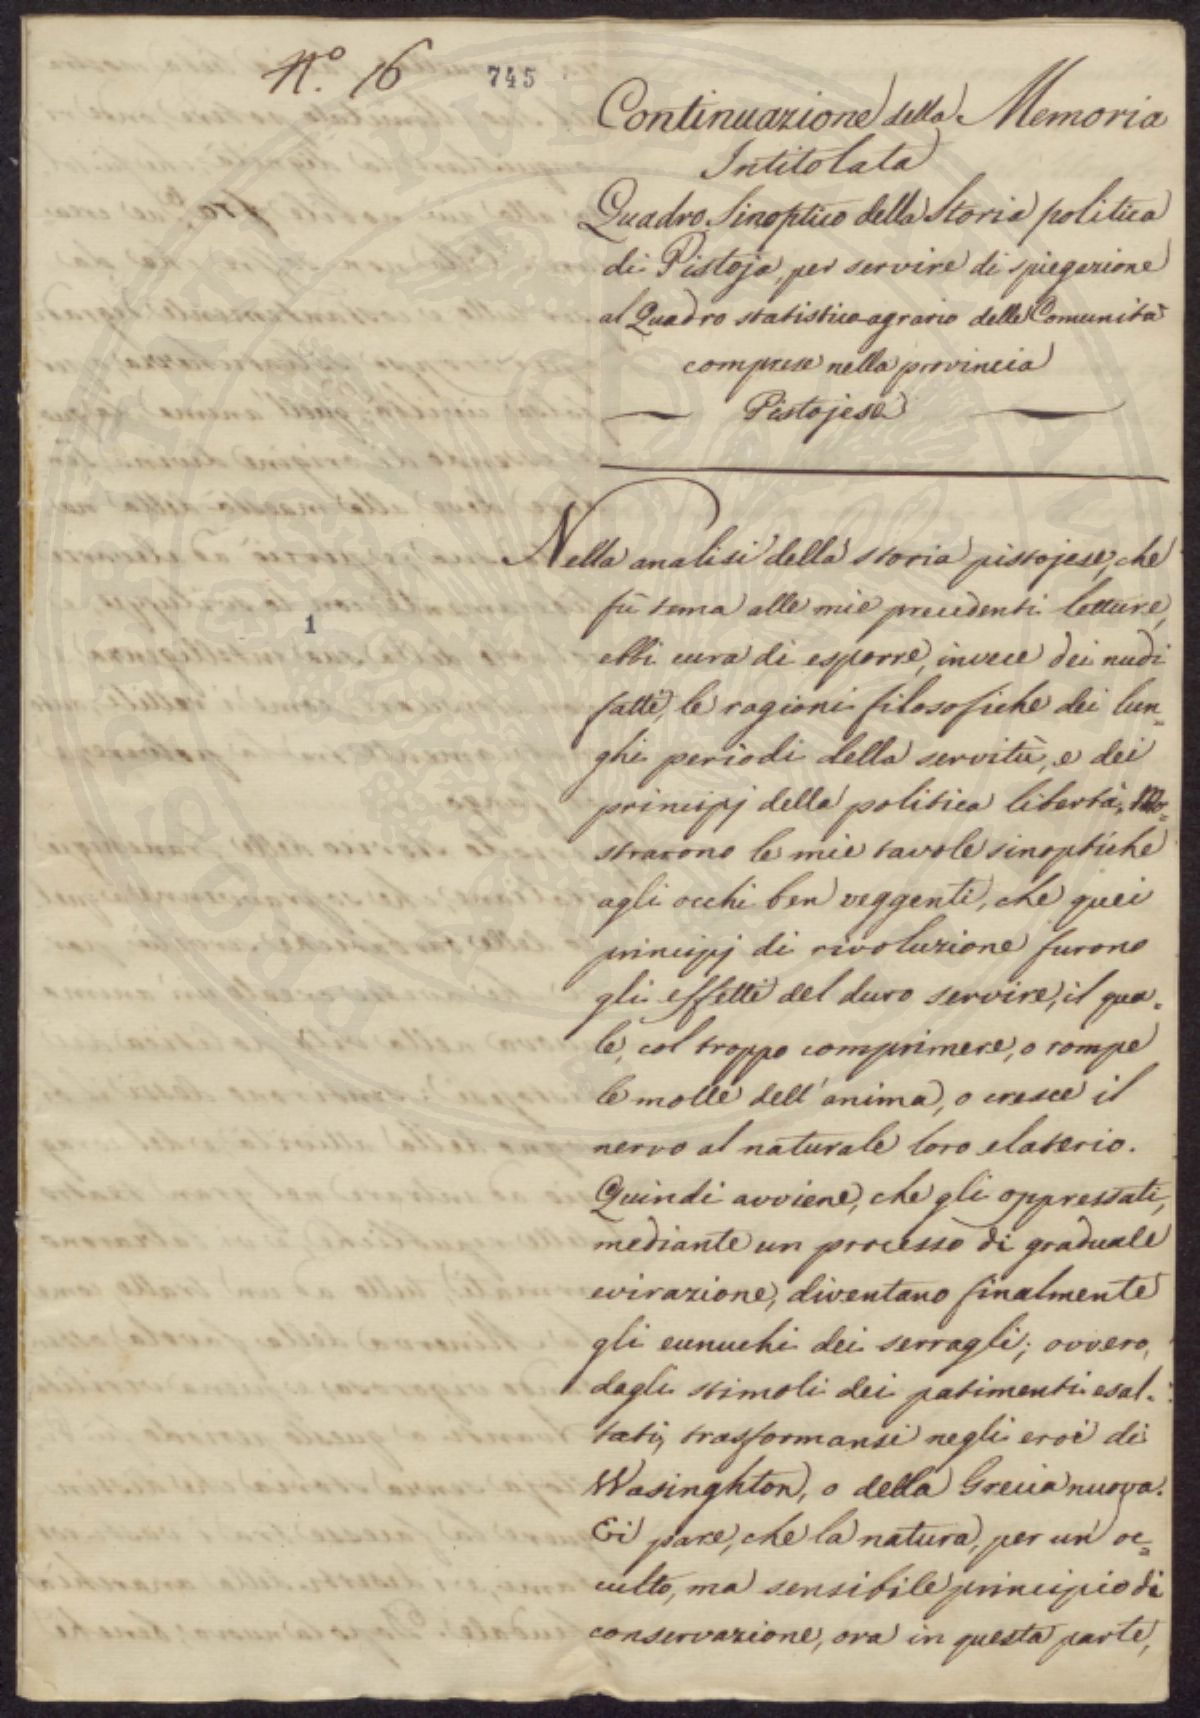 N.º 16
745
Continuazione della Memoria
Intitolata
Quadro Sinoptico della Storia politica
di Pistoja, per servire di spiegazione
al Quadro statistico-agrario delle Comunità
comprese nella provincia
Pistojese
Nella analisi della storia pistojese, che
fù tema alle mie precedenti letture,
ebbi cura di esporre, invece dei nudi
fatti, le ragioni filosofiche dei lun=
ghi periodi della servitù, e dei
principj della politica libertà. Mo=
strarono le mie tavole sinoptiche
agli occhi ben veggenti, che quei
principj di rivoluzione furono
gli effetti del duro servire, il qua=
le, col troppo comprimere, o rompe
le molle dell'anima, o cresce il
nervo al naturale loro elaterio.
Quindi avviene, che gli oppressati,
mediante un processo di graduale
evirazione, diventano finalmente
gli eunuchi dei serragli; ovvero,
dagli stimoli dei patimenti esal=
tati, trasformansi negli eroi di
Wasinghton, o della Grecia nuova.
Ei pare, che la natura, per un oc=
culto, ma sensibile principio di
conservazione, ora in questa parte,
1